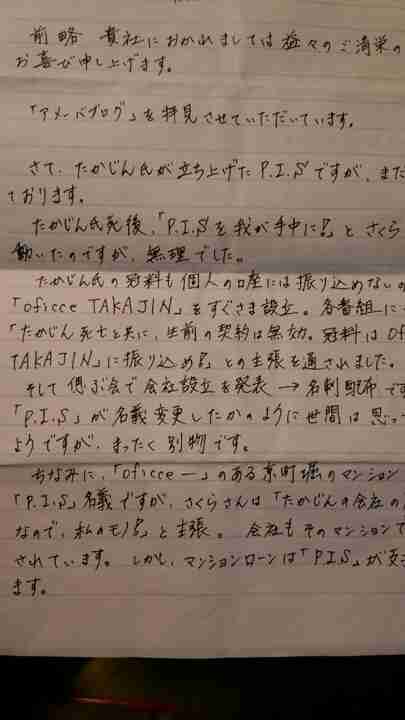 前略 貴社におかれましては益々のご清栄の
お喜び申し上げます。
「アメーバブログ」を拝見させていただいています。
さて、たかじん氏が立ち上げたP.I.Sですが、まだ
ております。
たかじん氏死後、「P.I.Sを我が手中に!!」とさくら
動いたのですが、無理でした。
たかじん氏の冠料も個人の口座には振り込めないの
「oficce TAKAJIN」をすぐさま設立。各番組に
「たかじん死亡と共に、生前の契約は無効。冠料はOf
TAKAJIN」に振り込め!!」との主張を通されました。
そして偲ぶ会で会社設立を発表→名刺配布です
「P.I.S」が名義変更したかのように世間は思っ
ようですが、まったく別物です。
ちなみに、「oficce ー」のある京町堀のマンション
「P.I.S」名義ですが、さくらさんは「たかじんの会社の
なので、私のモノ!!」と主張。会社もそのマンションで
されています。しかし、マンションローンは「P.I.S」が支
ます。